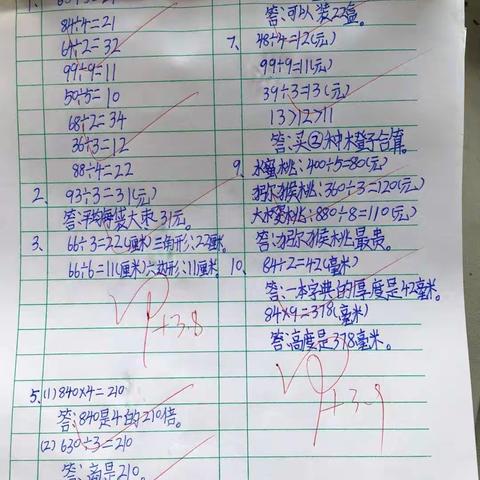 1.
84÷4=21
64÷2=32
99÷9=11
50÷5=10
68÷2=34
36÷3=12
88÷4=22
2. 93÷3=31(元)
答:平均每袋大枣31元。
3. 66÷3=22(厘米)三角形:22厘米。
66÷6=11(厘米)六边形:11厘米。
+3.8
5.(1)840×4=210
答:840是4的210倍。
(2)630÷3=210
答:商是210。
答:可以装22盒。
7. 48÷4=12(元)
99÷9=11(元)
39÷3=13(元)
13>12>11
答:买②种本子合算。
9. 水蜜桃:400÷5=80(元)
猕猴桃:360÷3=120(元)
大水蜜桃:880÷8=110(元)
答:猕猴桃最贵。
10. 84÷2=42(毫米)
答:一本字典的厚度是42毫米。
84×9=378(毫米)
答:高度是378毫米。
+3.9